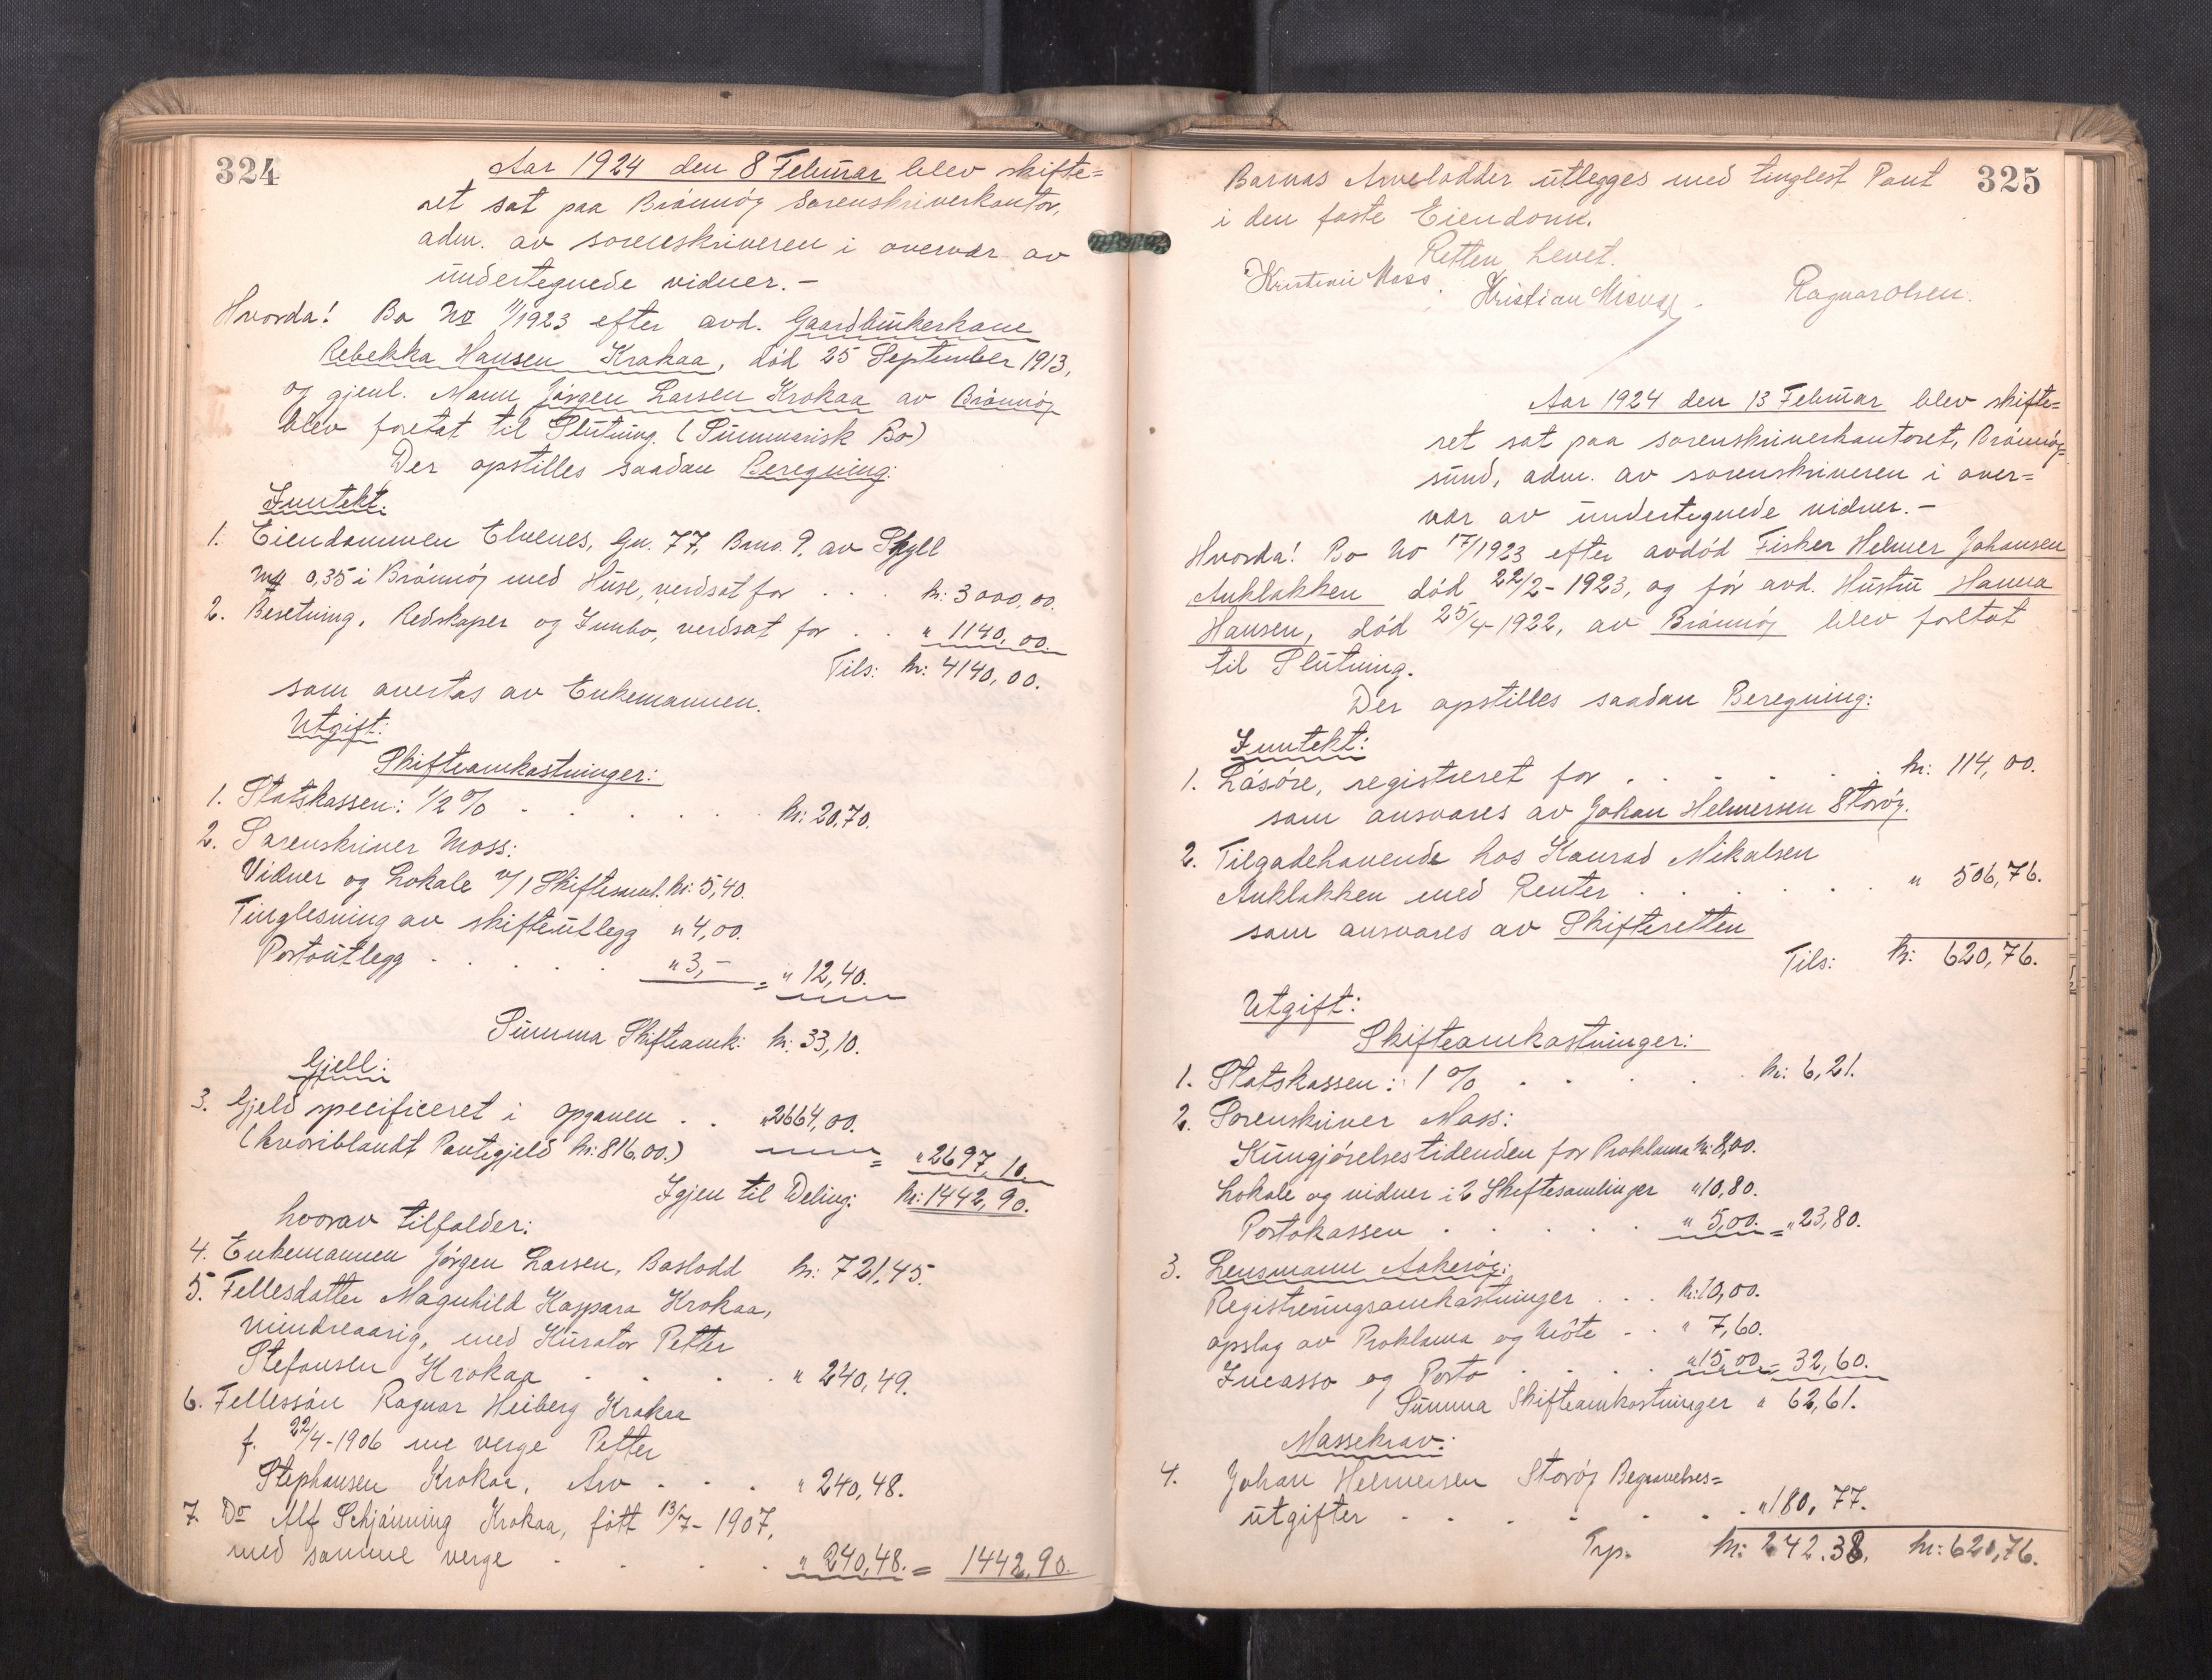 324
Aar 1924 den 8 Februar blev skifte=
ret sat paa Brønnøy Sorenskriverkontor,
adm. av sorenskriveren i overvær av
undertegnede vidner. —
Hvorda! Bo No 1/1923 efter avd. Gaardbrukerkone
Rebekka Hansen Krokaa, død 25 September 1913,
og gjenl. Mann Jørgen Larsen Krokaa av Brønnøy
blev foretat til Slutning. (Summarisk Bo)
Der opstilles saadan Beregning:
Inntekt:
1. Eiendommen Elvenes, Gn. 77, Brno. 9. av Skyll
mk 0,35 i Brønnøy med Huse, verdsat for . . . kr: 3000,00.
2. Besetning, Redskaper og Innbo, verdsat for . . " 1140,00.
Tils: kr: 4140,00.
som overtas av Enkemannen.
Utgift:
Skifteomkostninger:
1. Statskassen: 1/2 % . . . . . kr: 20,70.
2. Sorenskriver Moss:
Vidner og Lokale v/1 Skiftesaml. kr: 5,40.
Tinglesning av skifteutlegg " 4,00.
Portoutlegg . . . . . " 3,— = " 12,40.
Summa Skifteomk: kr: 33,10.
Gjell:
3. Gjeld specificeret i opgaven . . " 2664,00.
(hvoriblandt Pantegjeld kr: 816.00.) = " 2697,10
Igjen til Deling: kr: 1442,90.
hvorav tilfalder:
4. Enkemannen Jørgen Larsen, Boslodd kr: 721,45.
5. Fellesdatter Magnhild Kaspara Krokaa,
mindreaarig, med Kurator Petter
Stefansen Krokaa . . . . " 240,49.
6. Fellessøn Ragnar Heiberg Krokaa
f. 22/4-1906 me verge Petter
Stephansen Krokaa, Arv . . . " 240,48.
7. Do Alf Schjønning Krokaa, født 13/7-1907,
med samme verge . . . . " 240,48. = 1442,90.
325
Barnas Arvelodder utlegges med tinglest Pant
i den faste Eiendom.
Retten hevet.
Kristian Moss. Kristian Ragnar Olsen.
Aar 1924 den 13 Februar blev skifte=
ret sat paa sorenskriverkontoret, Brønnøy=
sund, adm. av sorenskriveren i over=
vær av undertegnede vidner. —
Hvorda! Bo No 17/1923 efter avdød Fisker Helmer Johansen
Auklakken død 22/2-1923, og før avd. Hustru Hanna
Hansen, død 25/4-1922, av Brønnøy blev foretat
til Slutning.
Der opstilles saadan Beregning:
Inntekt:
1. Løsøre, registreret for . . . . . . kr: 114,00.
som ansvares av Johan Helmersen Storøy.
2. Tilgodehavende hos Konrad Mikalsen
Auklakken med Renter . . . . . . " 506,76.
som ansvares av Skifteretten
Tils: kr: 620,76.
Utgift:
Skifteomkostninger:
1. Statskassen: 1 % . . . . kr: 6,21.
2. Sorenskriver Moss:
Kungjørelsestidenden for Proklama kr: 8,00.
Lokale og vidner i 2 Skiftesamlinger " 10,80.
Portokassen . . . . . " 5,00. = " 23,80.
3. Lensmann Aakerøy:
Registreringsomkostninger . . . kr: 10,00.
opslag av Proklama og Møte . . " 7,60.
Incasso og Porto . . . . " 15,00 = 32,60.
Summa Skifteomkostninger " 62,61.
Massekrav:
4. Johan Helmersen Storøy Begravelses=
utgifter . . . . . . . " 180,77.
Trp. kr: 242.38. kr: 620,76.